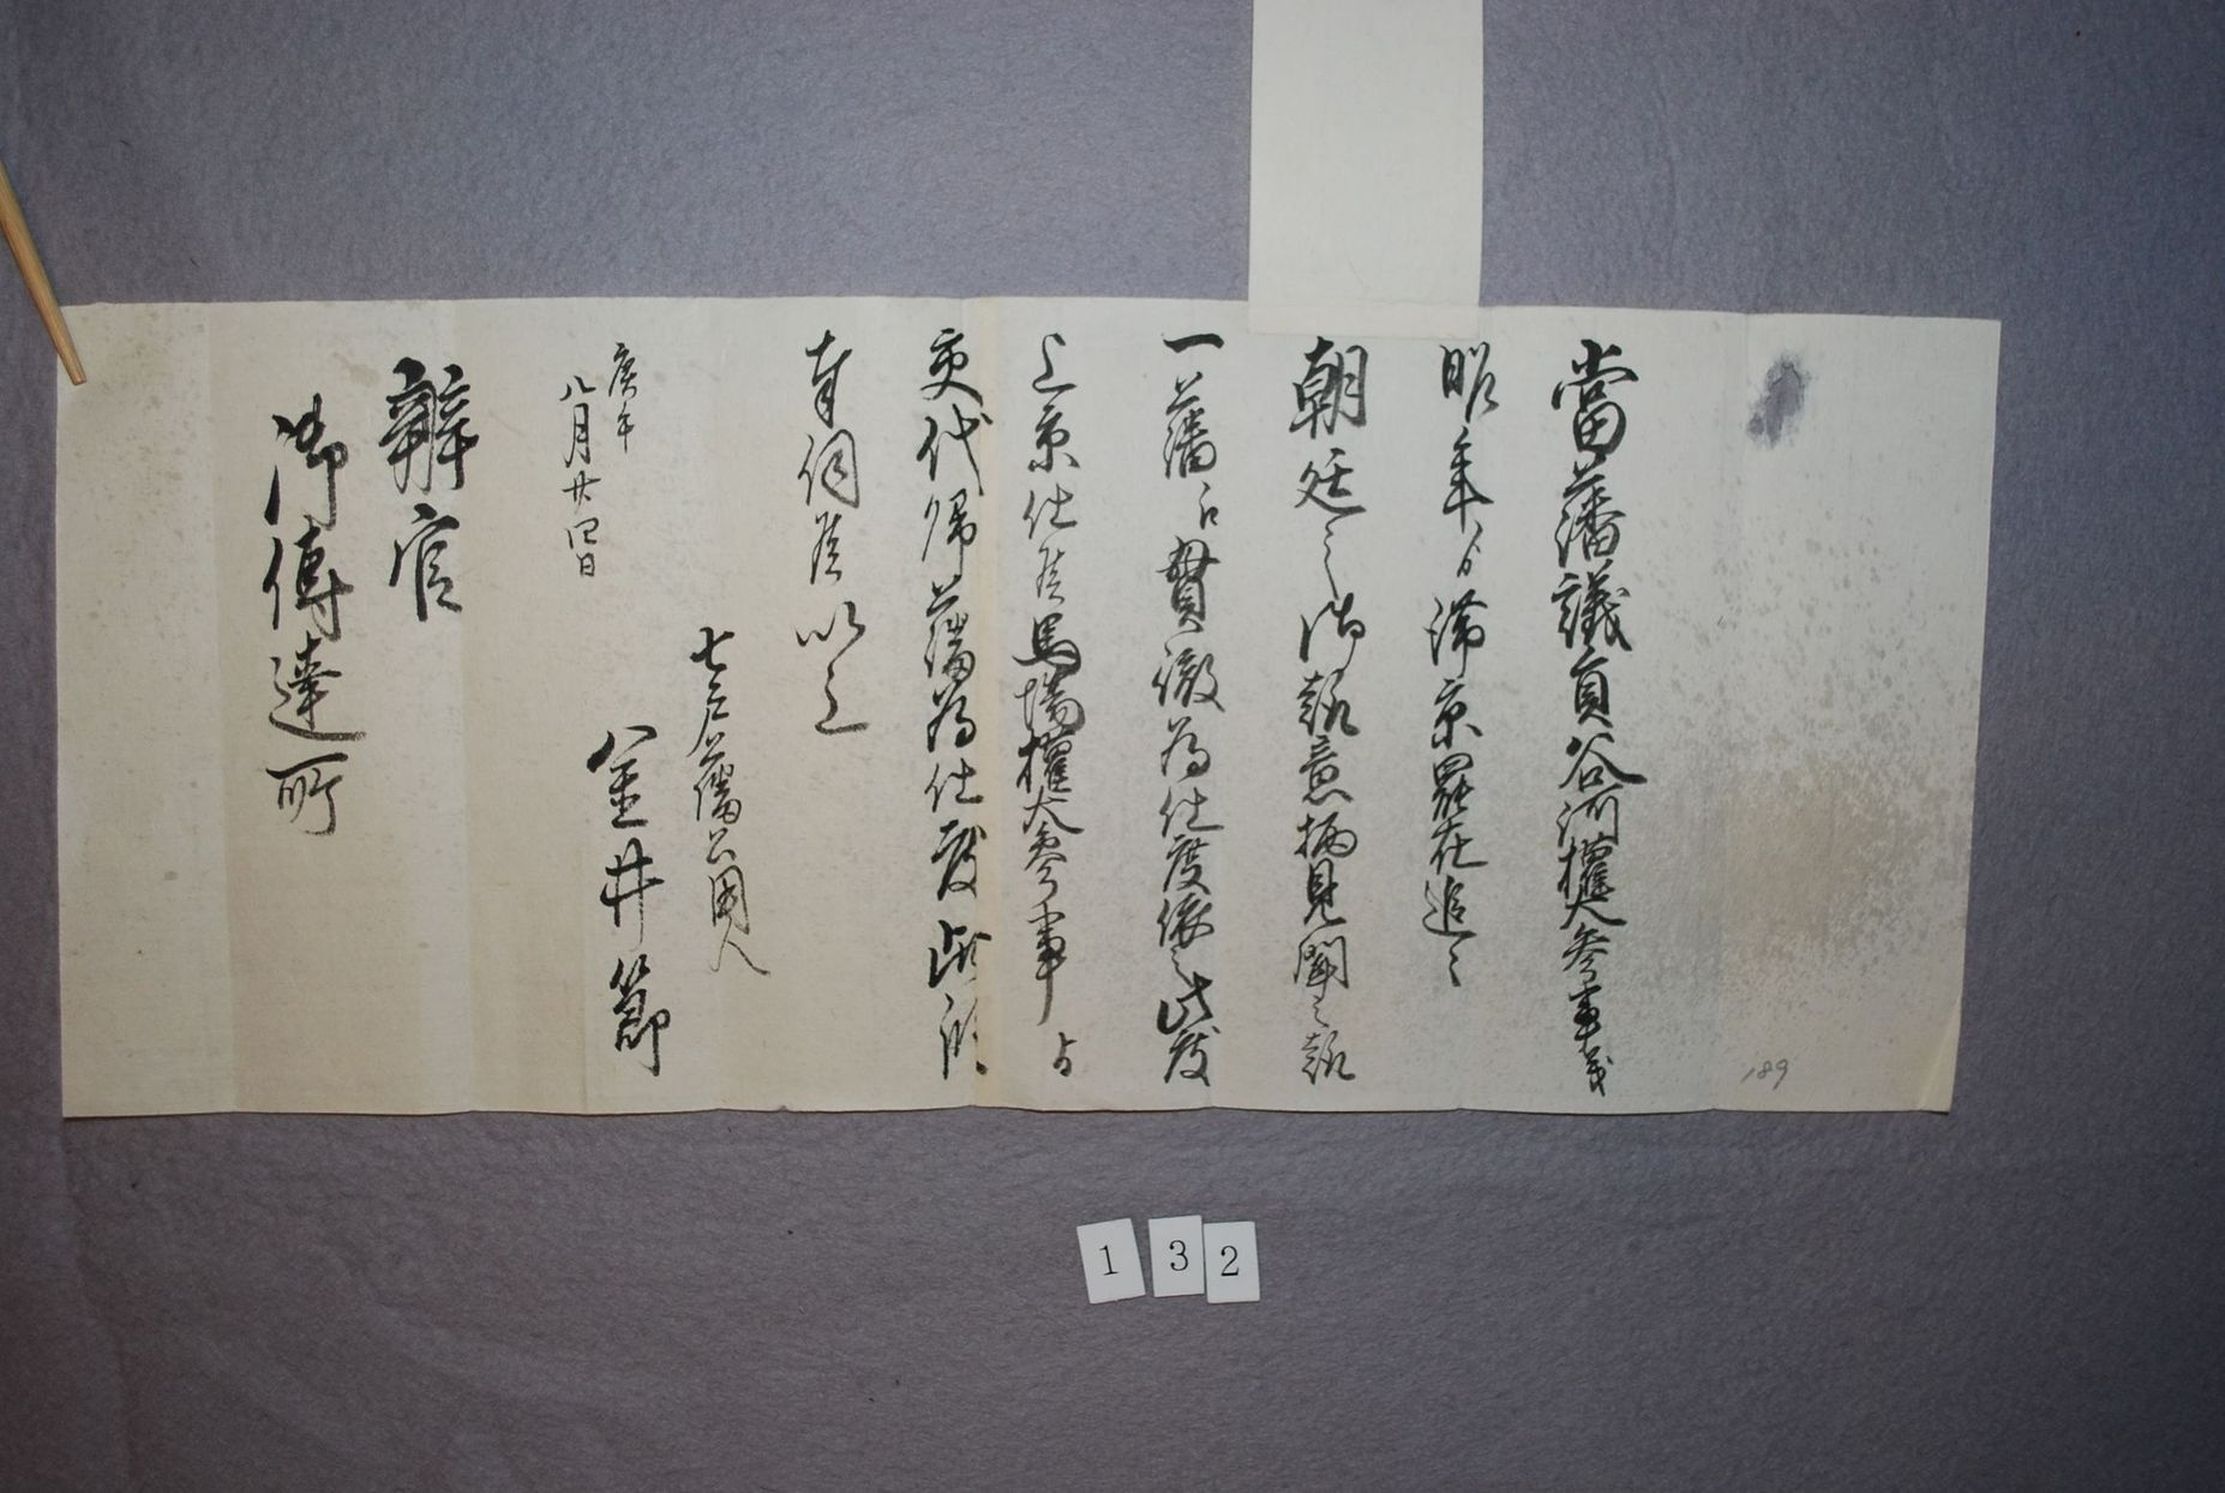 當藩議員谷河權大参事義
昨年ゟ滞京罷在追々
朝廷之御趣意柄見聞之趣
一藩江貫徹為仕度依之此度
上京仕候馬場權大参事与
交代帰藩為仕度此段
奉伺候以上
七戸藩公用人
金井節
庚午
八月廿四日
辨官
御傳達所
189
132